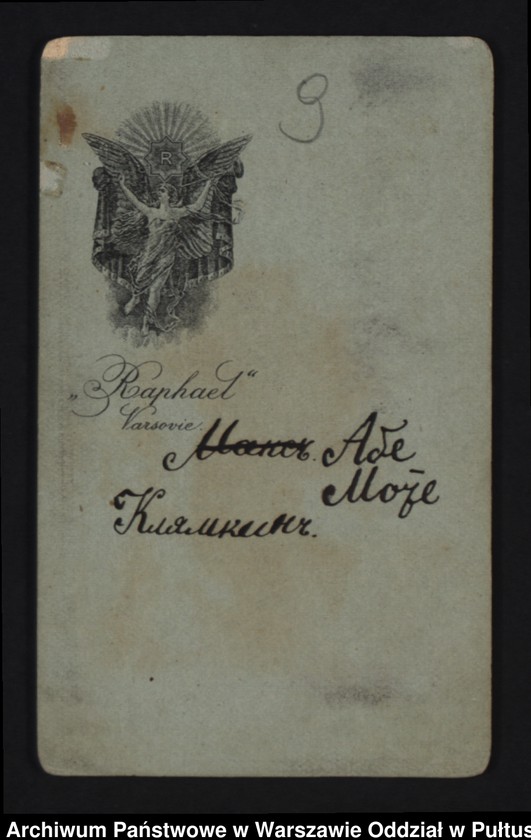 9
R
„Raphael“
Varsovie.
Максъ. Абе
Може
Клямкинъ.
Archiwum Państwowe w Warszawie Oddział w Pułtus